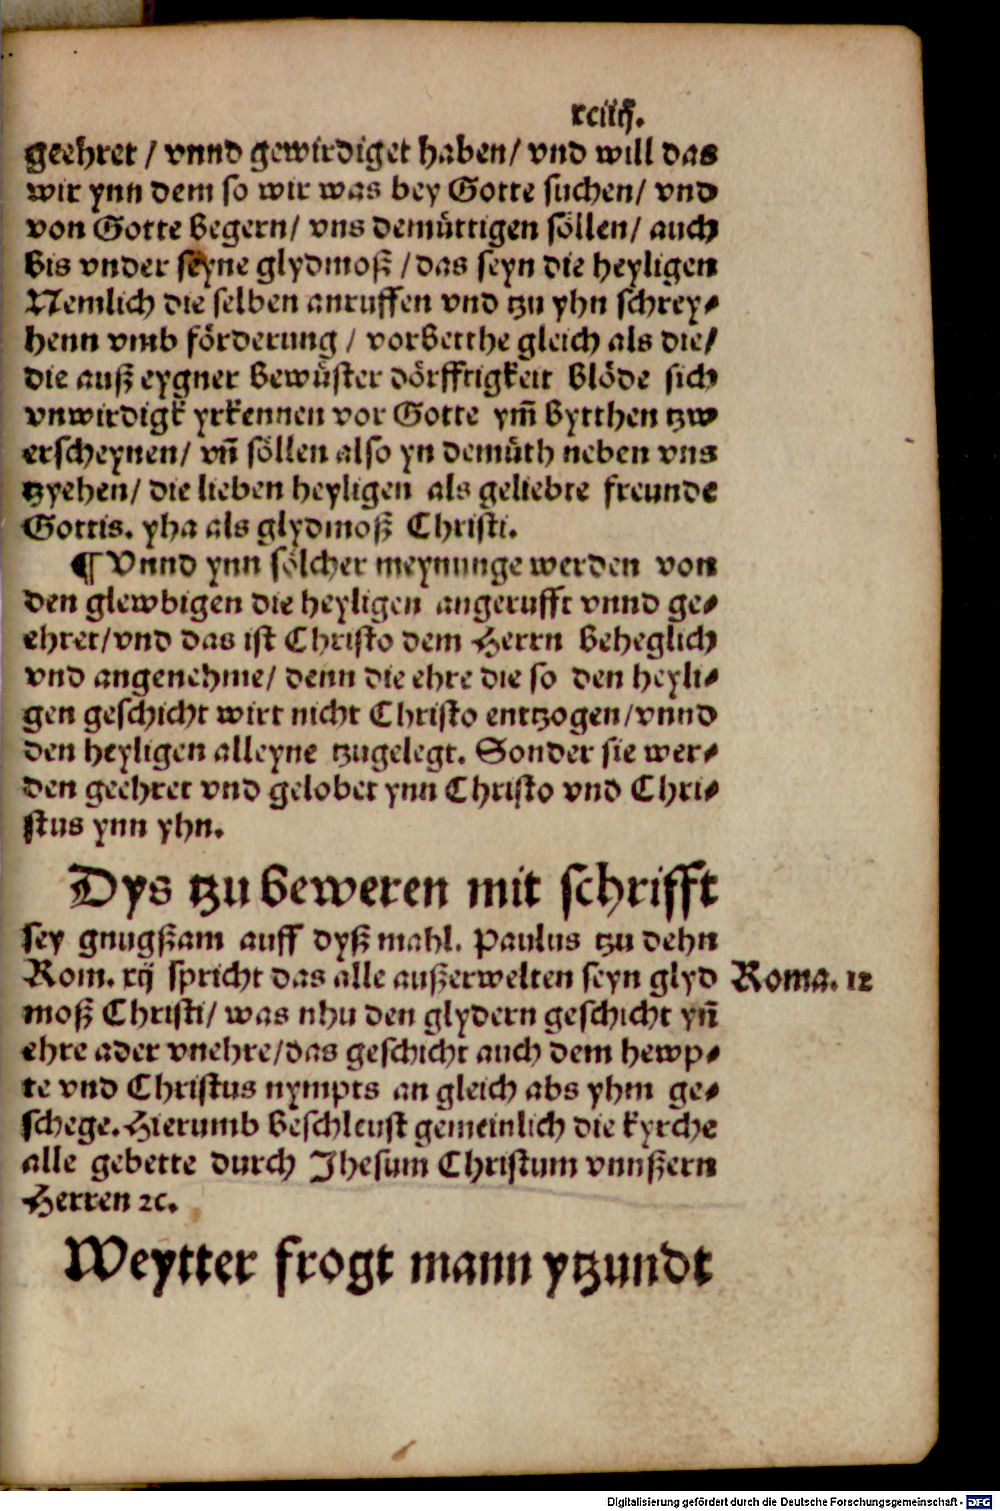 xciiij.
geehret / vnnd gewirdiget haben/ vnd will das
wir ynn dem so wir was bey Gotte suchen/ vnd
von Gotte begern/ vns demüttigen söllen/ auch
bis vnder seyne glydmoß /das seyn die heyligen
Nemlich die selben anruffen vnd tzu yhn schrey⸗
henn vmb förderung / vorbetthe gleich als die/
die auß eygner bewüster dörfftigkeit blöde sich
vnwirdigk yrkennen vor Gotte ym̃ bytthen tzw
erscheynen/ vñ söllen also yn demüth neben vns
tzyehen/ die lieben heyligen als geliebte freunde
Gottis. yha als glydmoß Christi.
¶ Vnnd ynn sölcher meynunge werden von
den glewbigen die heyligen angerufft vnnd ge⸗
ehret/vnd das ist Christo dem Herrn beheglich
vnd angenehme/ denn die ehre die so den heyli⸗
gen geschicht wirt nicht Christo enttzogen/vnnd
den heyligen alleyne tzugelegt. Sonder sie wer⸗
den geehret vnd gelobet ynn Christo vnd Chri⸗
stus ynn yhn.
Dys tzu beweren mit schrifft
sey gnugßam auff dyß mahl. Paulus tzu dehn
Rom. xij spricht das alle außerwelten seyn glyd
Roma. 12
moß Christi/ was nhu den glydern geschicht yñ
ehre ader vnehre/das geschicht auch dem hewp⸗
te vnd Christus nympts an gleich abs yhm ge⸗
schege. Hierumb beschleust gemeinlich die kyrche
alle gebette durch Jhesum Christum vnnßern
Herren ꝛc.
Weytter frogt mann ytzundt
Digitalisierung gefördert durch die Deutsche Forschungsgemeinschaft - DFG